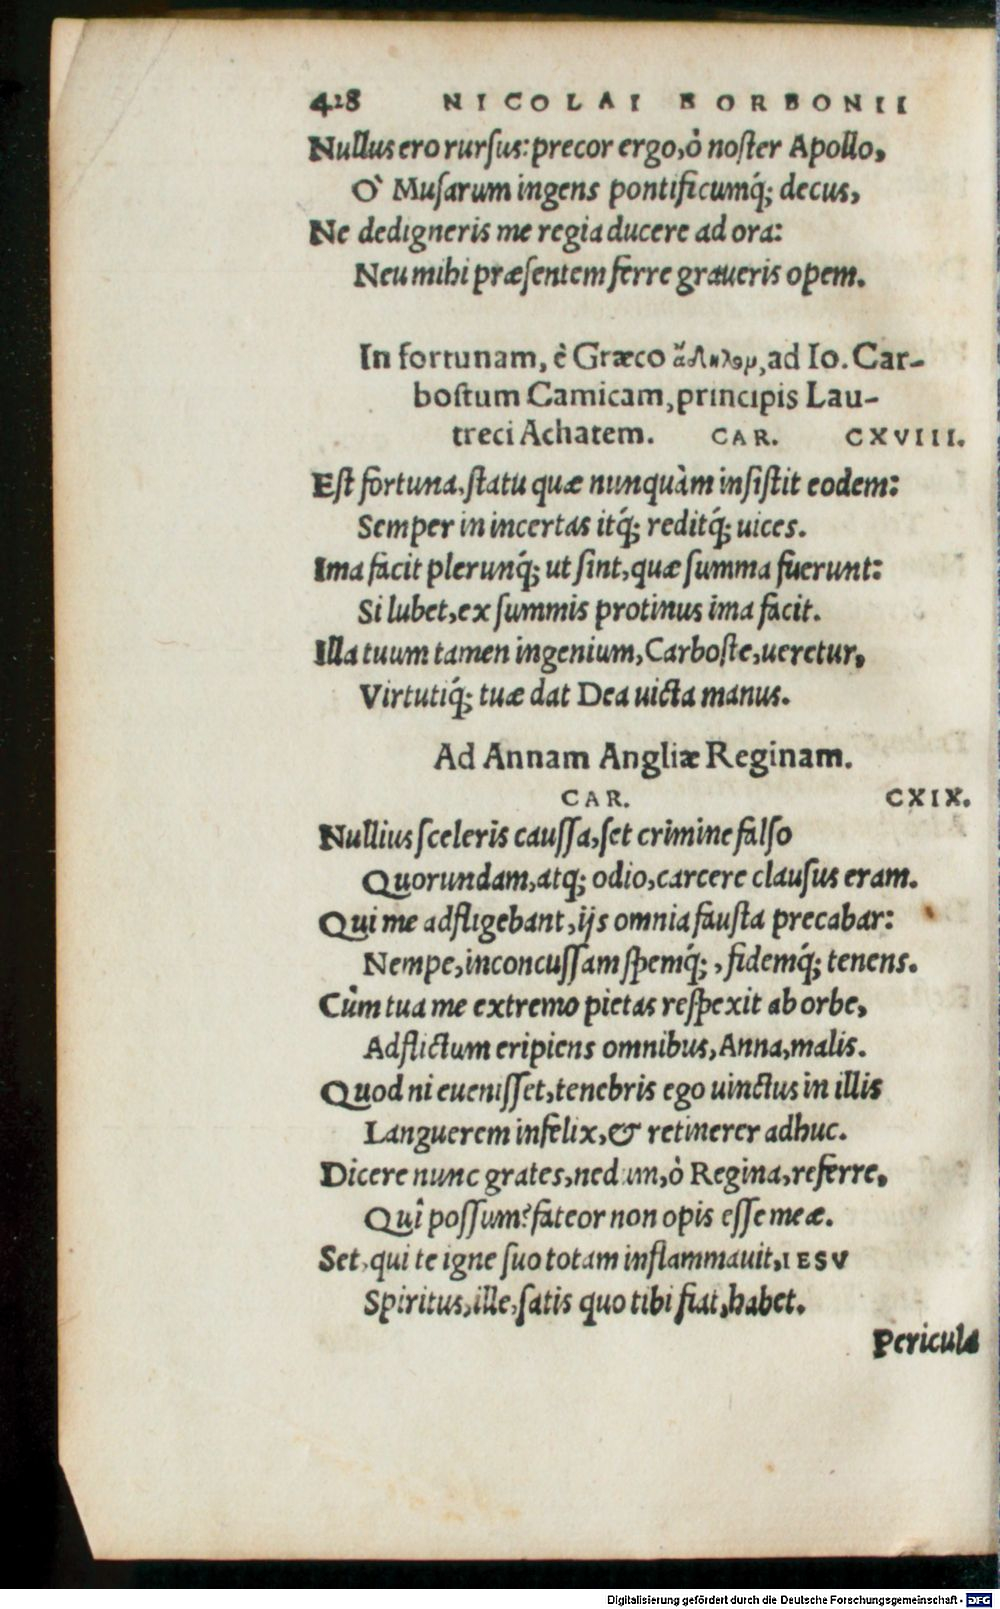 428 NICOLAI BORBONII
Nullus ero rursus: precor ergo, ò noster Apollo,
Ô Musarum ingens pontificumq́; decus,
Ne dedigneris me regia ducere ad ora:
Neu mihi præsentem ferre graueris opem.
In fortunam, è Græco ad Io. Car-
bostum Camicam, principis Lau-
treci Achatem. CAR. CXVIII.
Est fortuna, statu quæ nunquàm insistit eodem:
Semper in incertas itq́; reditq́; uices.
Ima facit plerunq́; ut sint, quæ summa fuerunt:
Si lubet, ex summis protinus ima facit.
Illa tuum tamen ingenium, Carboste, ueretur,
Virtutiq́; tuæ dat Dea uicta manus.
Ad Annam Angliæ Reginam.
CAR. CXIX.
Nullius sceleris caussa, set crimine falso
Quorundam, atq; odio, carcere clausus eram.
Qui me adfligebant, ijs omnia fausta precabar:
Nempe, inconcussam spemq́;, fidemq́; tenens.
Cùm tua me extremo pietas respexit ab orbe,
Adflictum eripiens omnibus, Anna, malis.
Quod ni euenisset, tenebris ego uinctus in illis
Languerem infelix, & retinerer adhuc.
Dicere nunc grates, nedum, ò Regina, referre,
Quî possum? fateor non opis esse meæ.
Set, qui te igne suo totam inflammauit, IESV
Spiritus, ille, satis quo tibi fiat, habet.
Pericula
Digitalisierung gefördert durch die Deutsche Forschungsgemeinschaft - DFG